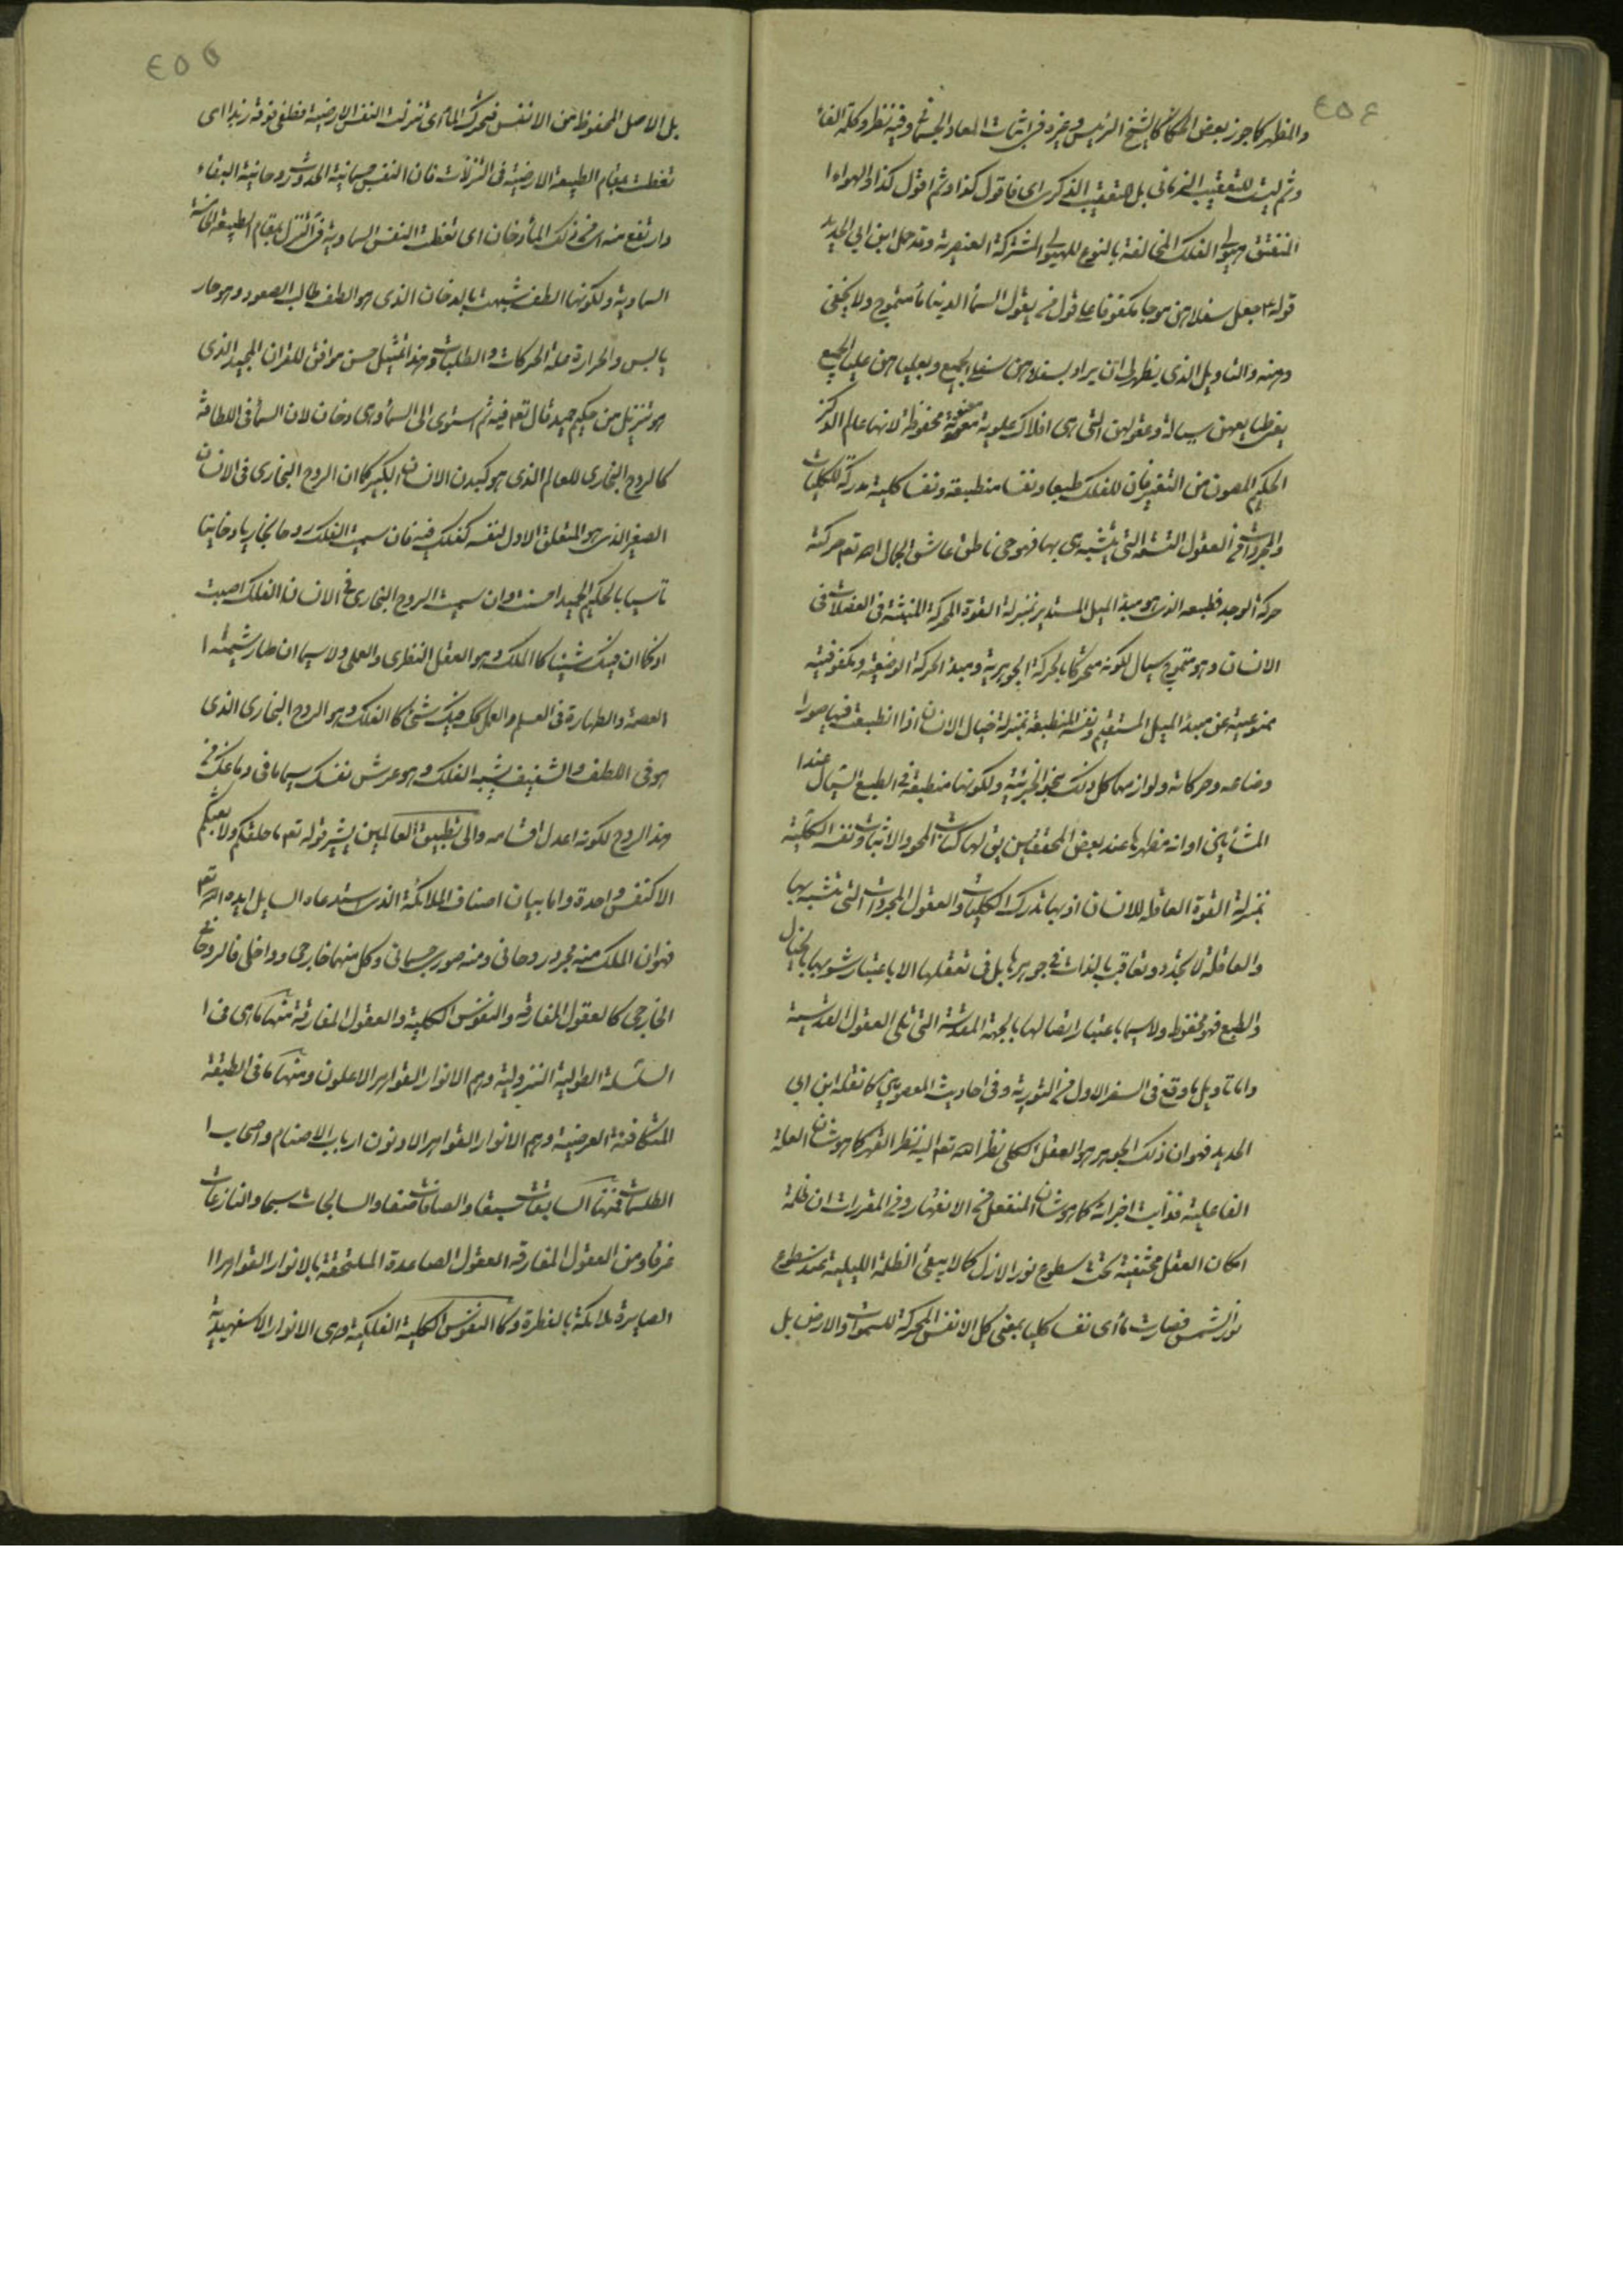 ٤٥٤
والمظهر كما جوز بعض الحكماء كالشيخ الرئيس وغيره في اثبات المعاد الجسماني وفيه نظر وكلمة الفاء
وثم ليست للتعقيب الزماني بل للتعقيب الذكرى اى فاقول كذا وثم اقول كذا والهواء ا
المنفتق هيولى الفلك المخالفة بالنوع للهيولى المشتركة العنصرية وقد حمل ابن ابي الحديد
قوله ع جعل سفلاهن موجا مكفوفا على قول من يقول السماء الدنيا ماء متموج ولا يخفى
وهنه والتاويل الذى يظهر لى ان يراد بسفلاهن سفلى الجميع وبعلياهن عليا الجميع
بفرط يعهن سيالة وعقولهن التى هى افلاك علوية محفوظة لانها عالم الذكر
الحكيم المصون من التغير فان للفلك طبعا ونفسا منطبعة ونفسا كلية مدركة للكليات
والمجردات من العقول التسعة التى يتشبه هى بها فهو حى ناطق عاشق لجمال الله تعم حركته
حركة الوجد فطبعه الذى هو مبدء الميل المستدير بمنزلة القوة المحركة المنبثة في العضلات في
الانسان وهو متموج سيال لكونه متحركا بالحركة الجوهرية ومبدء الحركة الوضعية ومكفوفيته
ممنوعيته عن مبدء الميل المستقيم ونفسه المنطبعة بمنزلة خيال الانسان اذا انطبعت فيها صور ا
وضاعه وحركاته ولوازمها كل ذلك بنحو الجزئية ولكونها منطبعة في الطبع السيال عند ا
المشائين او انه مظهرها عند بعض المحققين يق لها كتاب المحو والاثبات ونفسه الكلية
بمنزلة القوة العاقلة للانسان اذ بها تدرك الكليات والعقول المجردات التى يتشبه بها
والعاقلة لا تجدد وتعاقب بالذات في جوهرها بل في تعقلها الا باعتبار شوبها بالخيال
والطبع فهو محفوظ ولاسيما باعتبار اتصالها بالجهة المقدسة التى تلى العقول القدسية
واما تاويل ما وقع في السفر الاول من التورية وفى احاديث المعصومين كما نقله ابن ابى
الحديد فهو ان ذلك الجوهر هو العقل الكلى نظر الله تعم اليه نظر القهر كما هو شان العلة
الفاعلية فذابت اجزائه كما هو شان المنفعل من الانقهار ومن المقررات ان ظلمة
امكان العقل مختفية تحت سطوع نور الازل كما لا يبقى الظلمة الليلية عند سطوع
نور الشمس فصارت ماء اى نفسا كليا بمعنى كل الانفس المحركة للسموات والارض بل
٤٥٥
بل الاصل المحفوظ من الانفس فتحرك الماء اى تنزلت النفس الارضية فطفى فوقه زبد اى
تغطت بمقام الطبيعة الارضية في التنزلات فان النفس جسمانية الحدوث روحانية البقاء
وارتفع منه اى من ذلك الماء دخان اى تغطت النفس السماوية في التنزل بمقام الطبيعة الخامسة
السماوية ولكونها الطف شبهت بالدخان الذى هو الطف طالب الصعود وهو حار
يابس والحرارة علة الحركات والطلبات وهذا التمثيل حسن موافق للقران المجيد الذى
هو تنزيل من حكيم حميد قال تعم فيه ثم استوى الى السماء وهى دخان لان السماء في اللطافة
كالروح البخارى للعالم الذى هو كبدن الانسان الكبير كما ان الروح البخارى في الانسان
الصغير الذى هو المتعلق الاول لنفسه كفلك فيه فان سميت الفلك روحا بخاريا دخانيا
تاسيا بالحكيم الحميد احسنت وان سميت الروح البخارى في الانسان الفلك اصبت
اذ كما ان فيك شيئا كا الملك وهو العقل النظرى والعملى ولاسيما ان صار شيمته ا
العصمة والطهارة في العلم والعمل كك فيك شئ كا الفلك وهو الروح البخارى الذى
هو في اللطف والشفيف شبه الفلك وهو عرش نفسك سيما ما في دماغك من
هذ الروح لكونه اعدل اقسامه والى تطبيق العالمين يشير قوله تعم ما خلقكم ولا بعثكم
الا كنفس واحدة واما بيان اصناف الملائكة الذى استدعاه السايل ايده الله تعم
فهو ان الملك منه مجرد روحانى ومنه صورى جسمانى وكل منهما خارجى وداخلى فالروحانى
الخارجى كالعقول المفارقه والنفوس الكلية والعقول المفارقة منها ما هى في ا
السلسلة الطولية النزولية وهم الانوار القواهر الاعلون ومنها ما في الطبقة
المتكافئة العرضية وهم الانوار القواهر الادنون ارباب الاصنام واصحاب ا
الطلسمات فمنها السابقات سبقا والصافات صفا والسابحات سبحا والنازعات
غرقا ومن العقول المفارقه العقول الصاعدة الملتحقة بالانوار القواهر ا
الصايرة ملائكة بالفطرة وكا النفوس الكلية الفلكية وهى الانوار الاسفهبدية